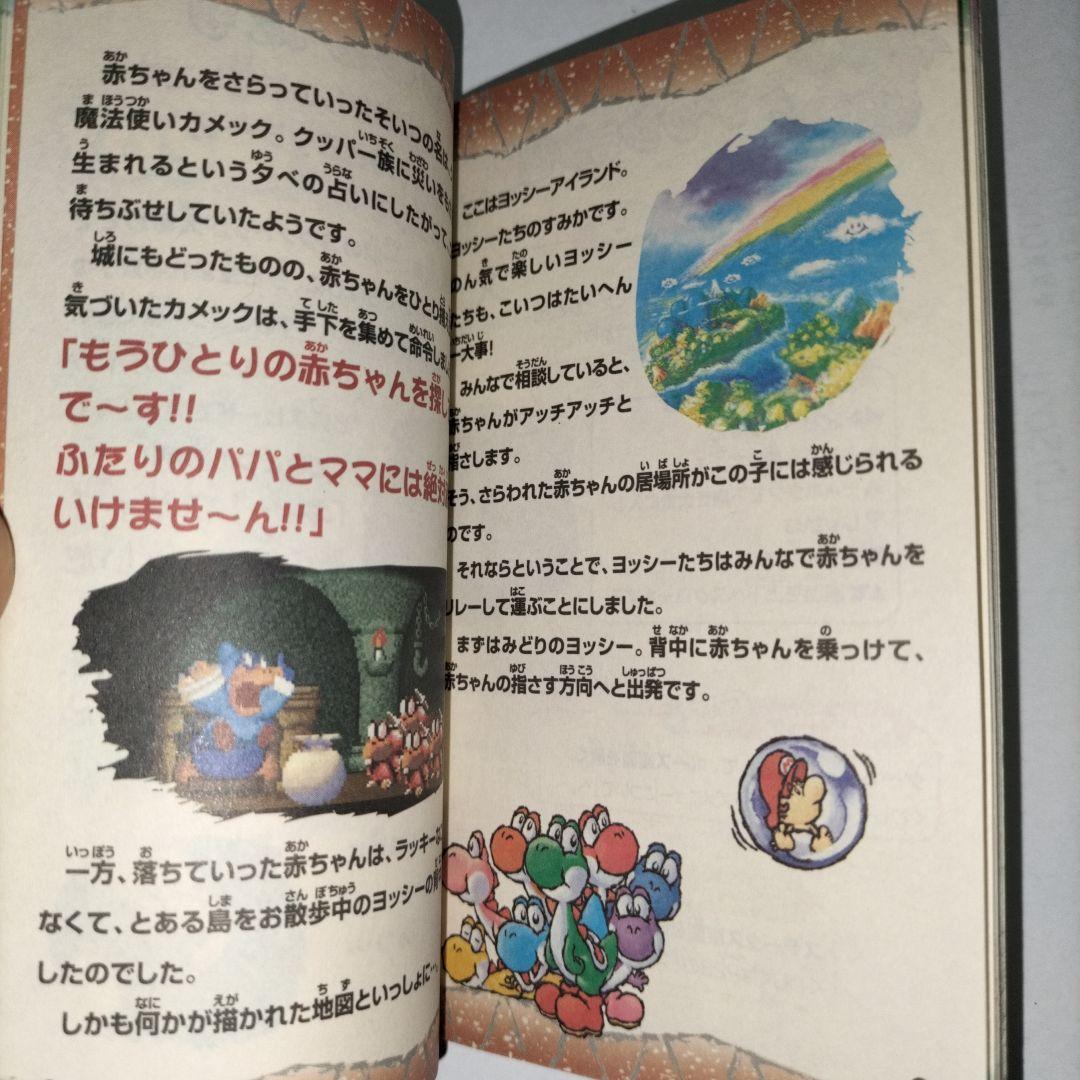 赤ちゃんをさらっていったそいつの名は、
魔法使いカメック。クッパ一族に災いを
生まれるという夕べの占いにしたがって、
待ちぶせしていたようです。
城にもどったものの、赤ちゃんをひとり
気づいたカメックは、手下を集めて命令しま
「もうひとりの赤ちゃんを探し
で〜す!!
ふたりのパパとママには絶対
いけませ〜ん!!」
一方、落ちていった赤ちゃんは、ラッキーな
なくて、とある島をお散歩中のヨッシーの背
したのでした。
しかも何かが描かれた地図といっしょに…。
ここはヨッシーアイランド。
ヨッシーたちのすみかです。
のん気で楽しいヨッシー
たちも、こいつはたいへん
一大事!
みんなで相談していると、
赤ちゃんがアッチアッチと
指さします。
そう、さらわれた赤ちゃんの居場所がこの子には感じられる
のです。
それならということで、ヨッシーたちはみんなで赤ちゃんを
リレーして運ぶことにしました。
まずはみどりのヨッシー。背中に赤ちゃんを乗っけて、
赤ちゃんの指さす方向へと出発です。